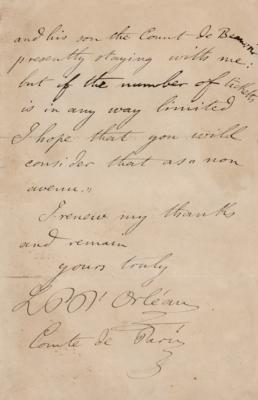 and his son the Count de
presently staying with me:
but if the number of tickets
is in any way limited
I hope that you will
consider that as a non
avenu.,,
I renew my thanks
and remain
yours truly
L P d'Orléans
Comte de Paris